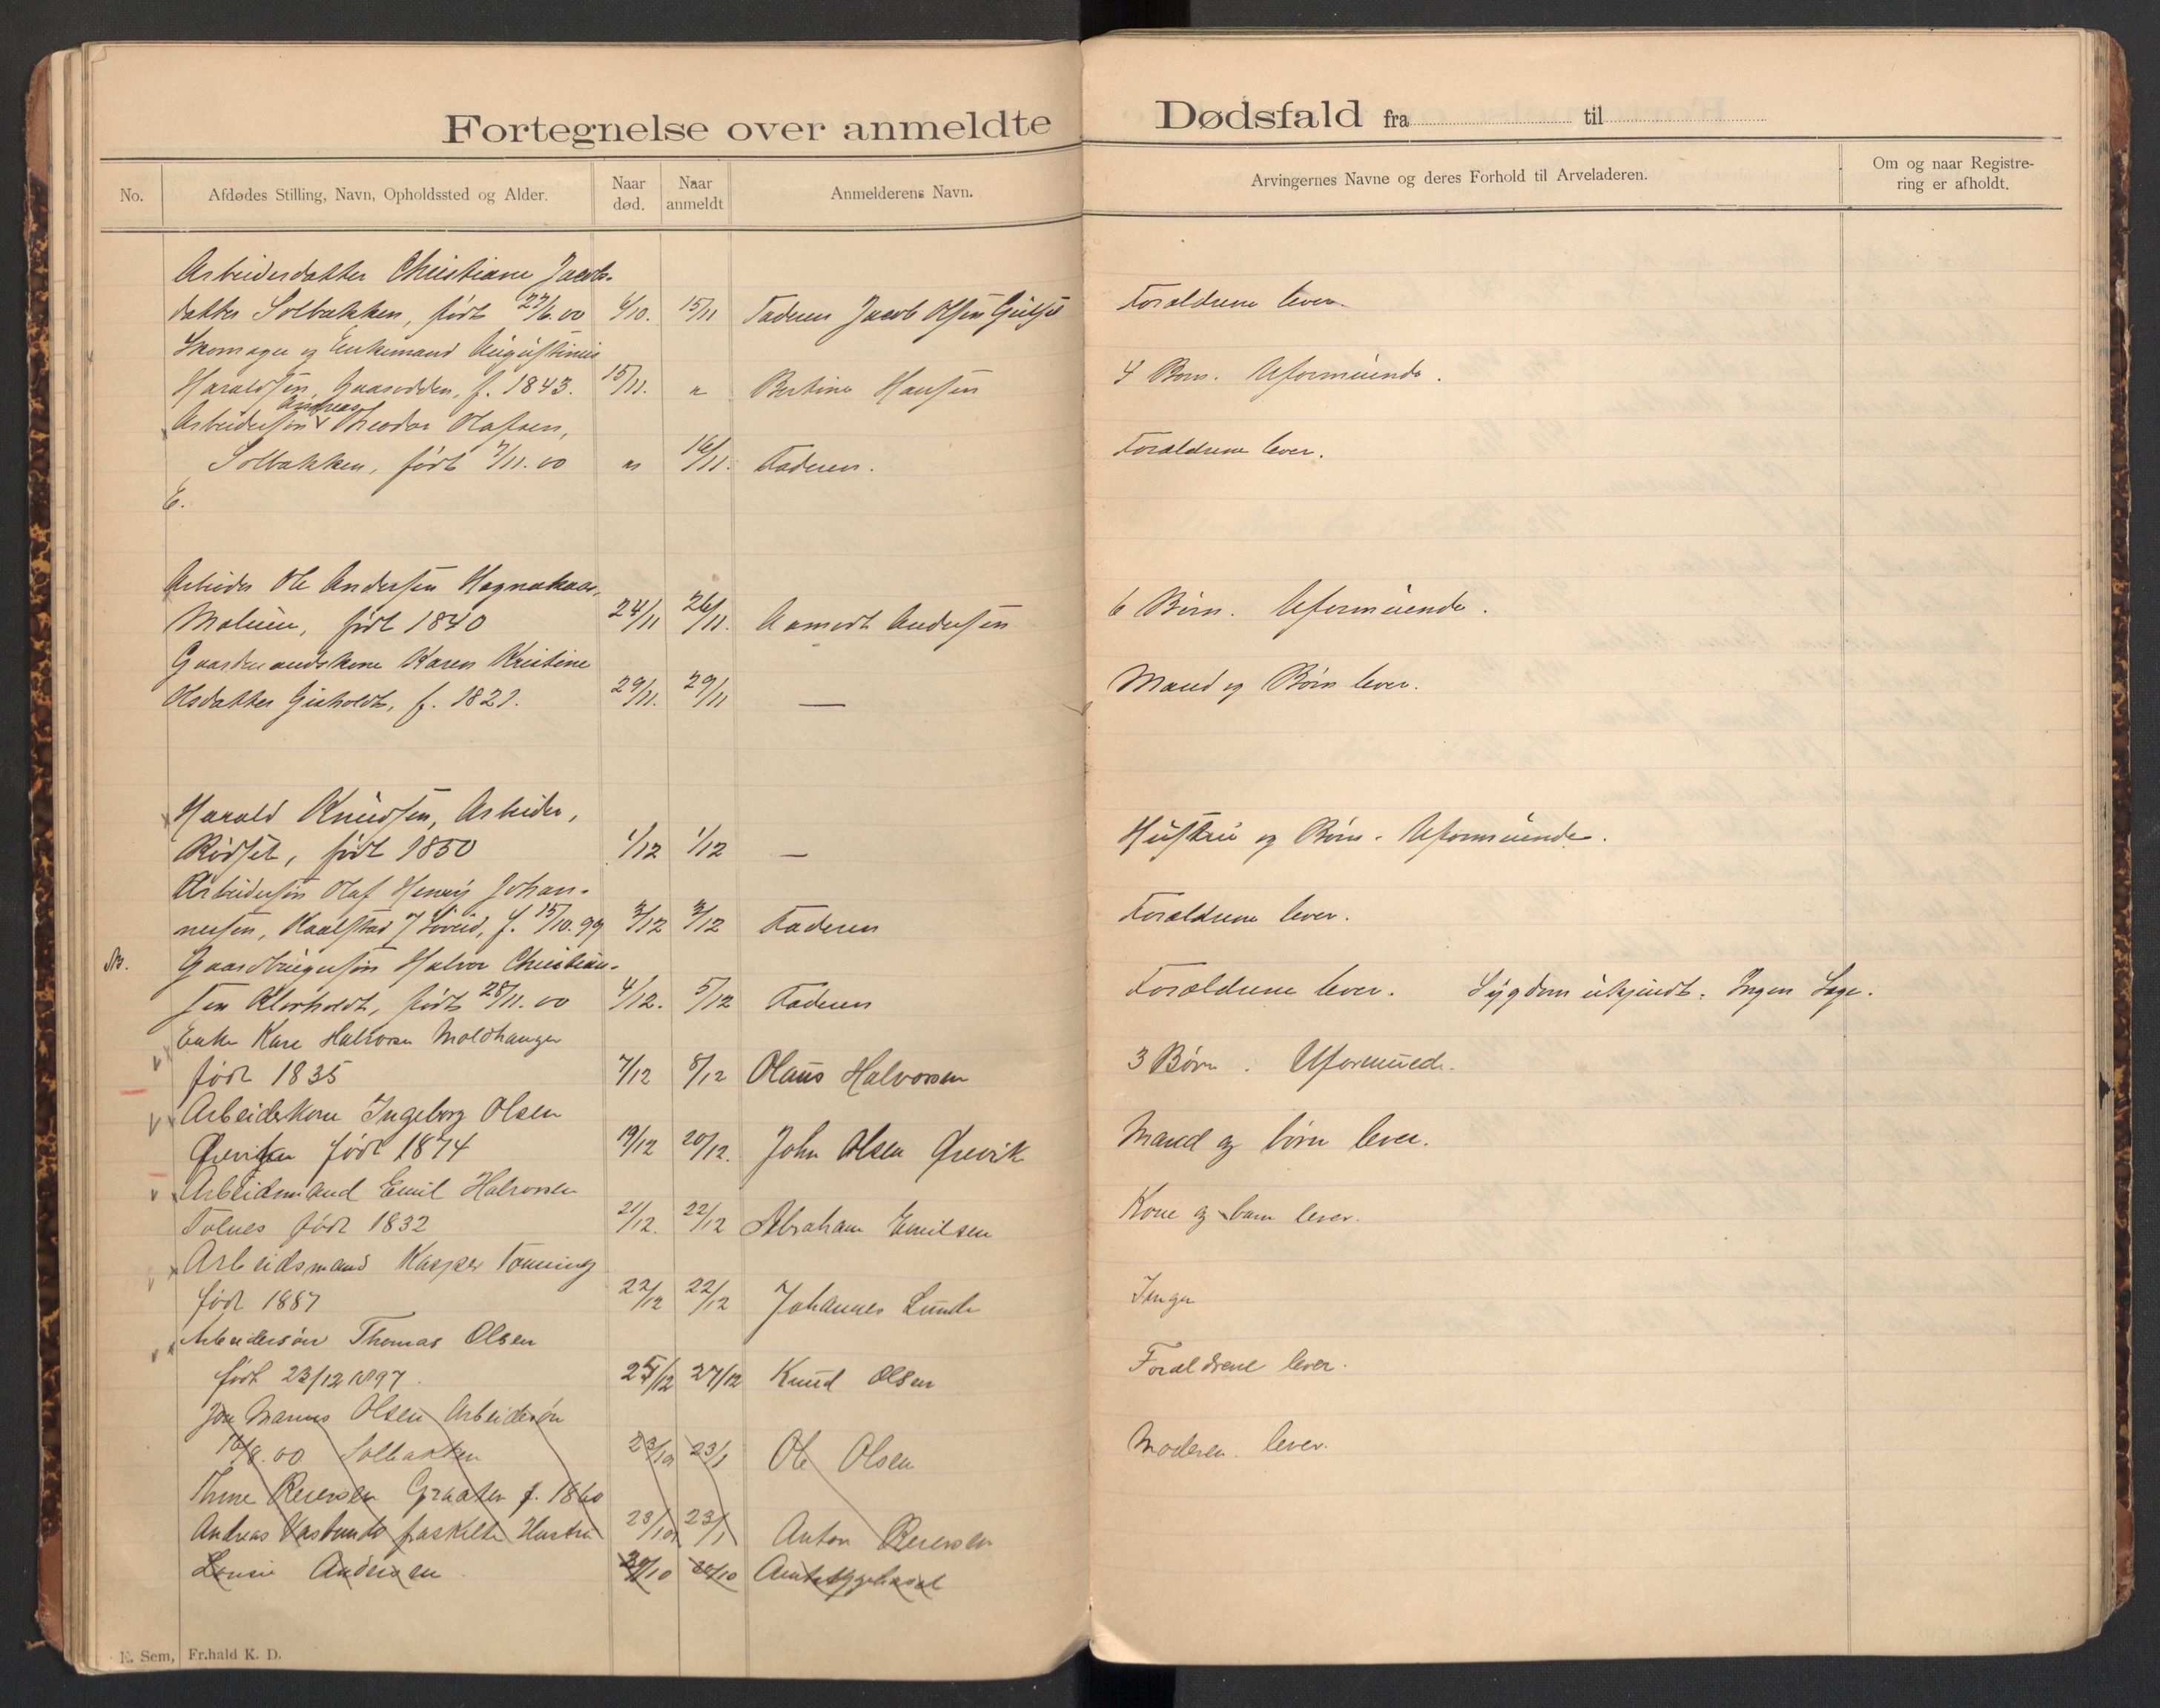 Fortegnelse over anmeldte Dødsfald fra til
No. Afdødes Stilling, Navn, Opholdssted og Alder. Naar død. Naar anmeldt Anmelderens Navn. Arvingernes Navne og deres Forhold til Arveladeren. Om og naar Registrering er afholdt.
Arbeiderdatter Christiane Jacobs-
datter Solbakken, født 27/6.00 6/10. 15/11 Faderen Jacob Olsen Forældrene lever.
Skomager og Enkemand Augustinius
Haraldsen, Gaasodden, f. 1843. 15/11. " Bertine Hansen 4 Børn. Uformuende.
Andreas
Arbeidersøn Theodor Olafsen,
Solbakken, født 7/11.00 " 16/11. Faderen. Forældrene lever.
E.
Arbeider Ole Andersen
født 1840 24/11 26/11. Aamodt Andersen 6 Børn. Uformuende.
Gaardmandskone Karen Kristine
Olsdatter Gisholdt, f. 1821. 29/11. 29/11 — Mand og Børn lever.
Harald Knudsen, Arbeider,
Rødset, født 1850 1/12 1/12 — Hustru og Børn. Uformuende.
Arbeidersøn Olaf Henry Johan-
nesen, f. 15/10.99 3/12 3/12 Faderen Forældrene lever.
Nb. Gaardbrugersøn Halvor Christian-
sen født 28/11.00 4/12. 5/12 Faderen Forældrene lever. Sygdom ukjendt. Ingen Læge.
Enke Kare Halvorsen Moldhaugen
født 1835 7/12 8/12 Olaus Halvorsen 3 Børn. Uformued.
Arbeiderkone Ingeborg Olsen
født 1874 19/12 20/12. John Olsen Ørevik Mand og børn lever.
Arbeidsmand Emil Halvorsen
Tolnes født 1832 21/12. 22/12 Abraham Emilsen Kone og barn lever.
Arbeidsmand Kasper Tonning
født 1887 22/12 22/12 Johannes Lunde Ingen
Arbeidersøn Thomas Olsen
født 23/12 1897. 25/12 27/12 Knud Olsen Forældrene lever.
Olsen Arbeidersøn
16/8.00 Solbakken 23/1 Ole Olsen Moderen lever.
Reiersen Graaten f. 1860
Andreas fraskilte Hustru 23/1 Anton Reiersen
Andersen
E. Sem, Fr.hald K. D.